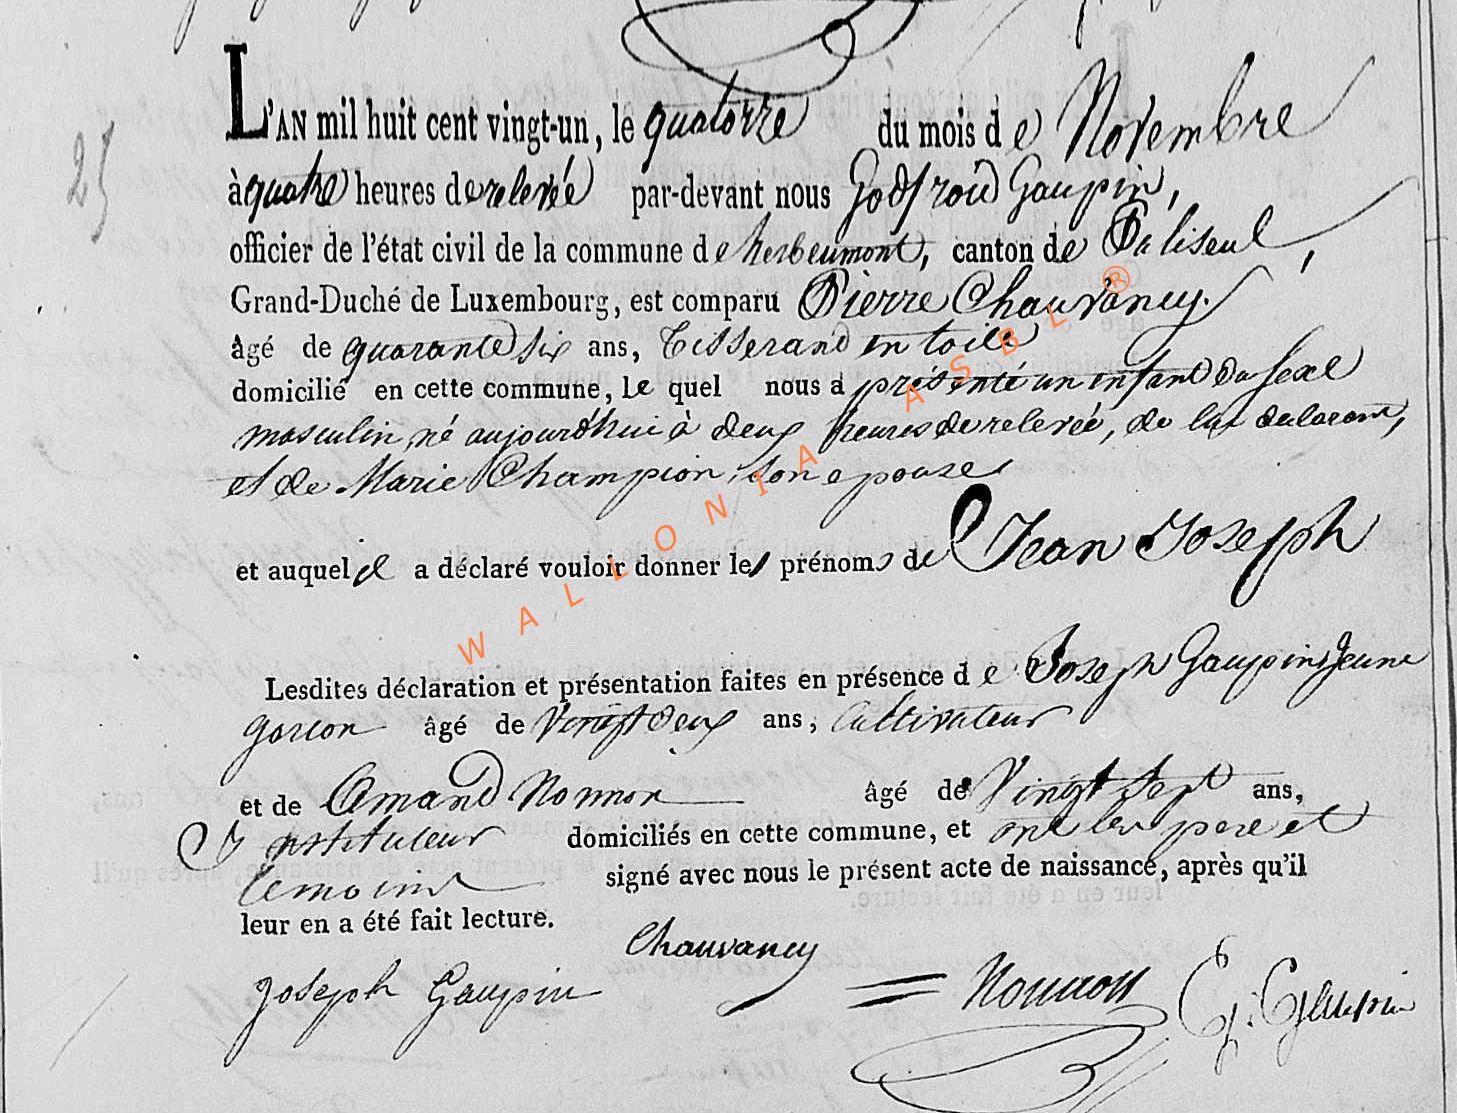 L'AN mil huit cent vingt-un, le quatorze du mois de Novembre
25
à quatre heures de relevée par-devant nous Godfroid Gaupin,
officier de l'état civil de la commune de herbeumont, canton de Paliseul,
Grand-Duché de Luxembourg, est comparu Pierre Chauvancy.
âgé de quarante six ans, Tisserand en toile
domicilié en cette commune, le quel nous a présenté un enfant du sexe
masculin, né aujourd'hui à deux heures de relevée, de lui declarant,
et de Marie Champion, son epouse
et auquel il a déclaré vouloir donner les prénoms de Jean Joseph
Lesdites déclaration et présentation faites en présence de Joseph Gaupin, Jeune
garcon âgé de Vingt deux ans, Cultivateur
et de Amand Nonnon âgé de Vingt sept ans,
Instituteur domiciliés en cette commune, et ont les pere et
temoins signé avec nous le présent acte de naissance, après qu'il
leur en a été fait lecture.
Chauvancy
Joseph Gaupin Nonnon G: Gaupin
WALLONIA ASBL ®